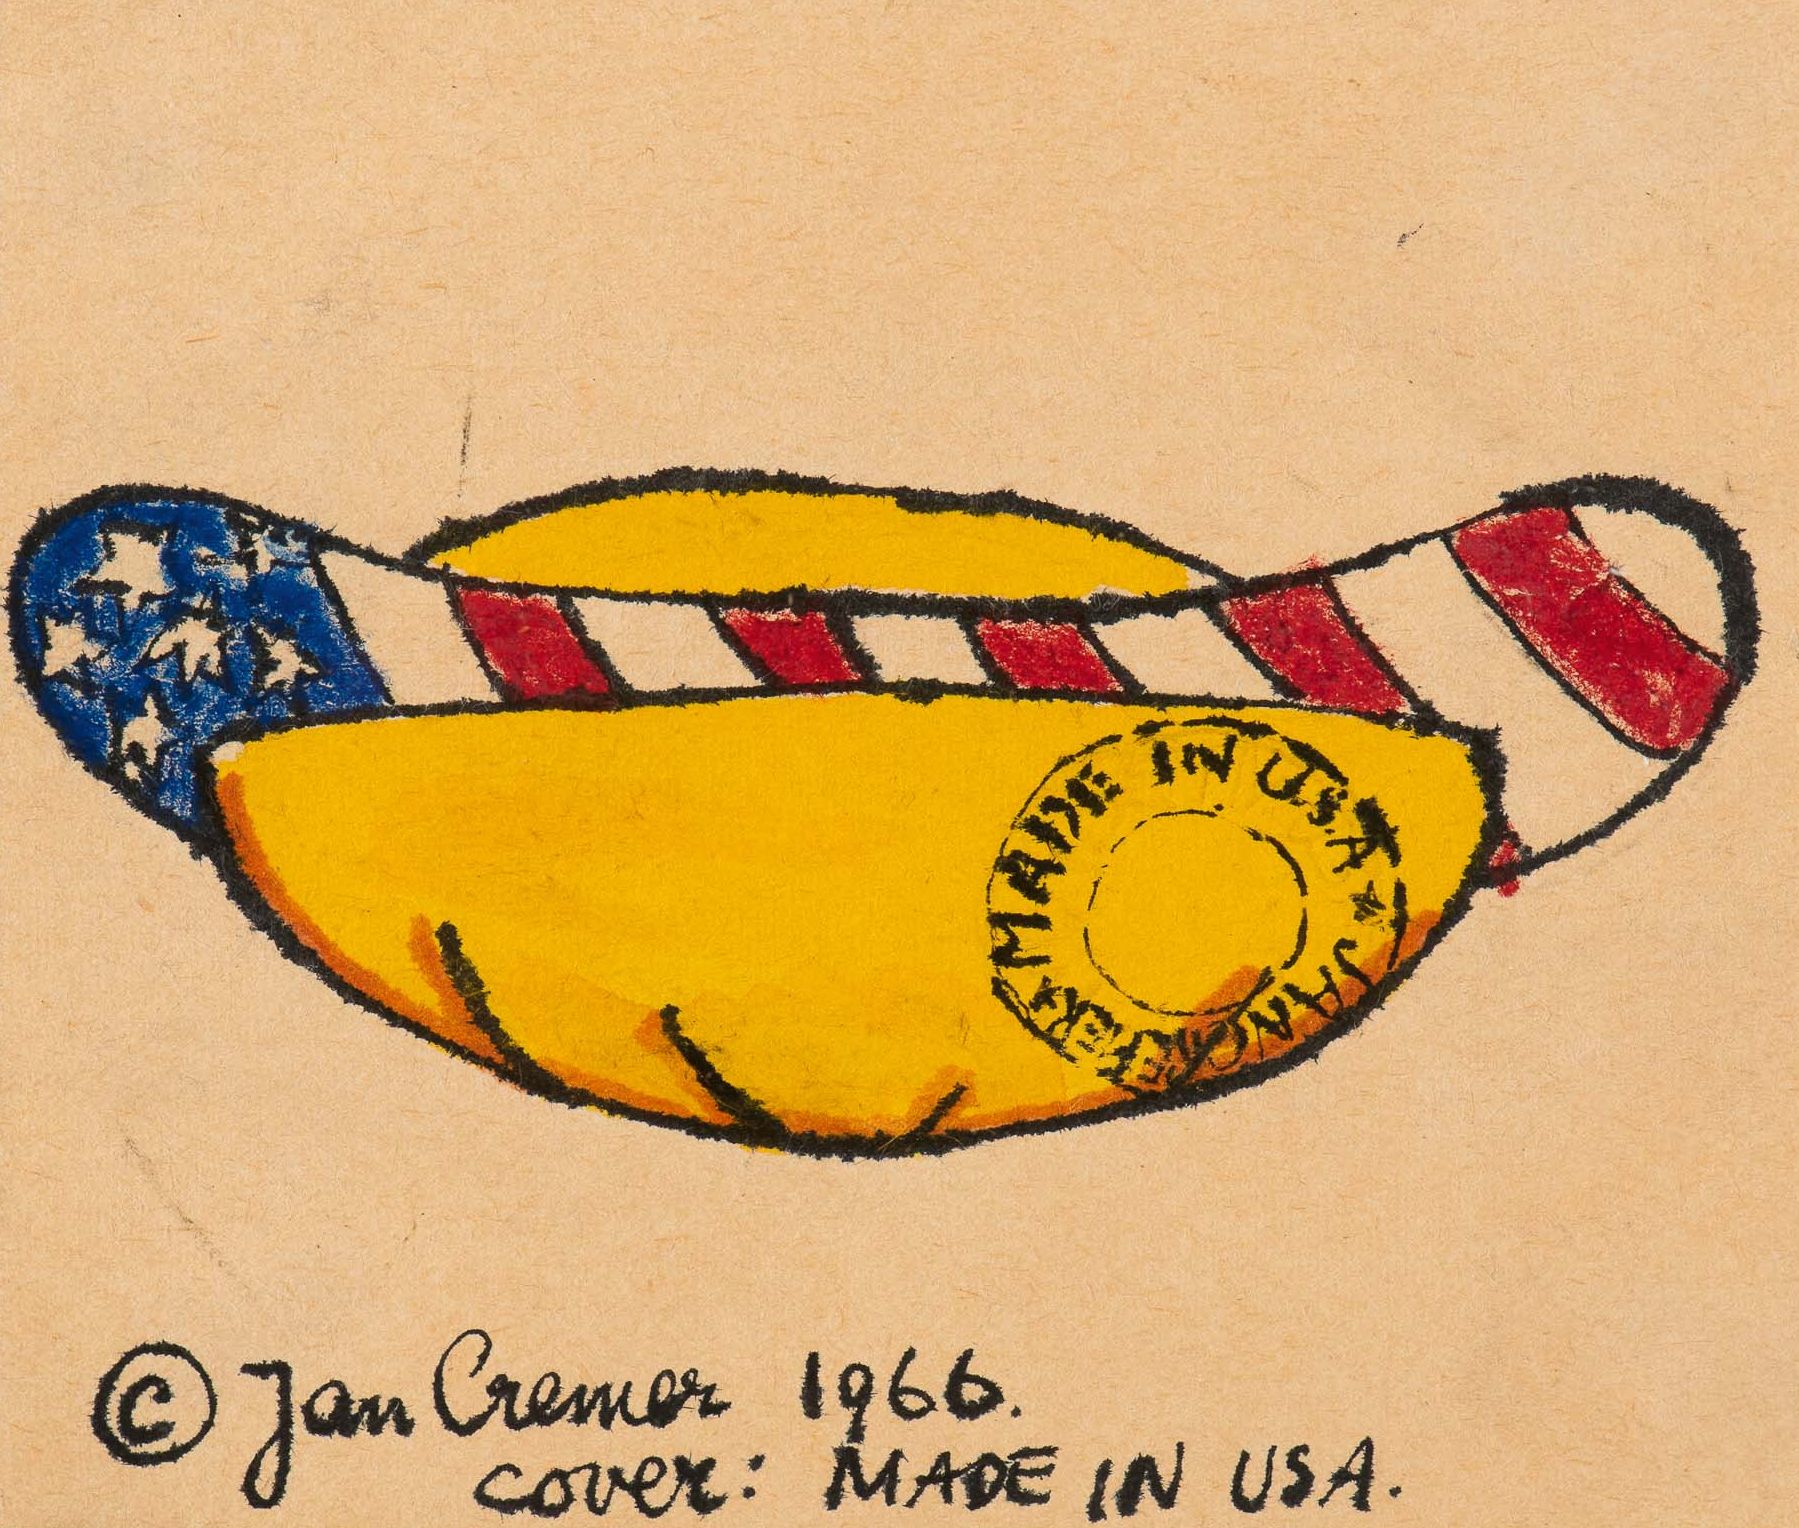 MADE IN U.S.A ★ JAN CREMER ★
© Jan Cremer 1966.
cover: MADE IN USA.